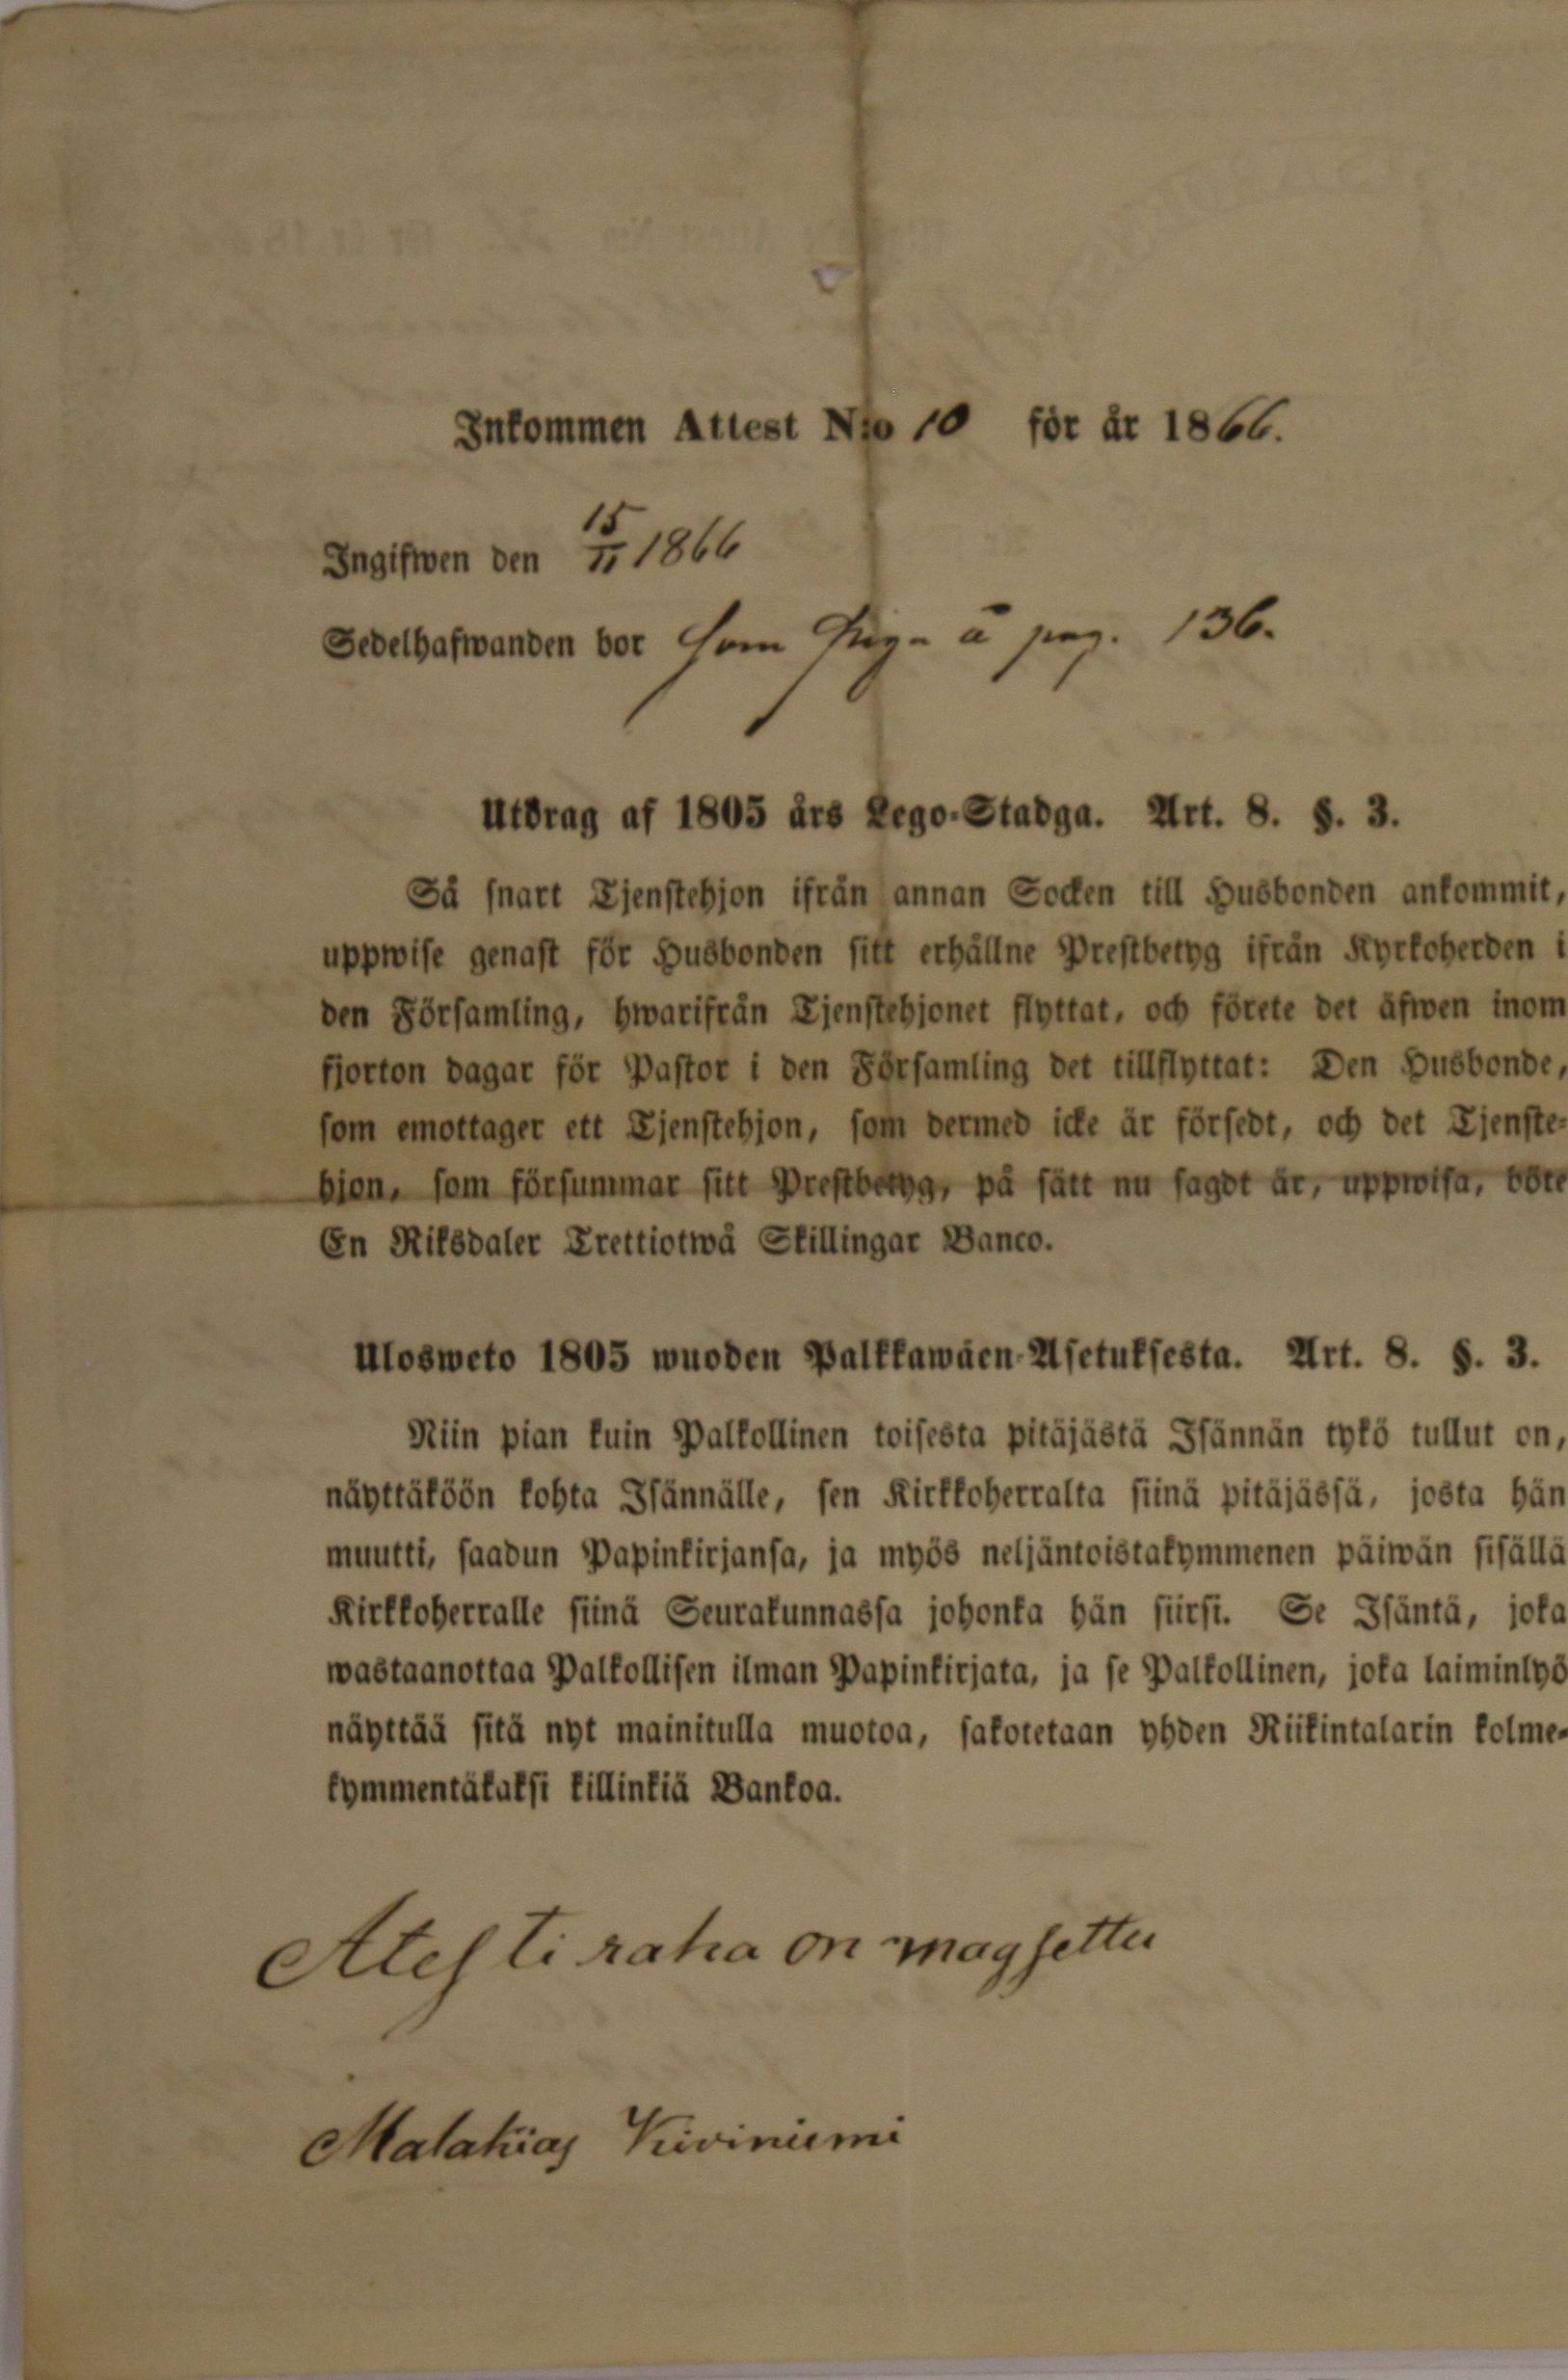 Inkommen Attest N:o 10 för år 1866.
Ingifwen den 15/11 1866
Sedelhafwanden bor som Piga å pag. 136.
Utdrag af 1805 års Lego-Stadga. Art. 8. §. 3.
Så snart Tjenstehjon ifrån annan Socken till Husbonden ankommit,
uppwise genast för Husbonden sitt erhållne Prestbetyg ifrån Kyrkoherden i
den Församling, hwarifrån Tjenstehjonet flyttat, och förete det äfwen inom
fjorton dagar för Pastor i den Församling det tillflyttat: Den Husbonde,
som emottager ett Tjenstehjon, som dermed icke är försedt, och det Tjenste-
hjon, som försummar sitt Prestbetyg, på sätt nu sagdt är, uppwisa, böte
En Riksdaler Trettiotwå Skillingar Banco.
Ulosweto 1805 wuoden Palkkawäen-Asetuksesta. Art. 8. §. 3.
Niin pian kuin Palkollinen toisesta pitäjästä Isännän tykö tullut on,
näyttäköön kohta Isännälle, sen Kirkkoherralta siinä pitäjässä, josta hän
muutti, saadun Papinkirjansa, ja myös neljäntoistakymmenen päiwän sisällä
Kirkkoherralle siinä Seurakunnassa johonka hän siirsi. Se Isäntä, joka
wastaanottaa Palkollisen ilman Papinkirjata, ja se Palkollinen, joka laiminlyö
näyttää sitä nyt mainitulla muotoa, sakotetaan yhden Riikintalarin kolme-
kymmentäkaksi killinkiä Bankoa.
Atesti raha on magsettu
Malakias Kiviniemi